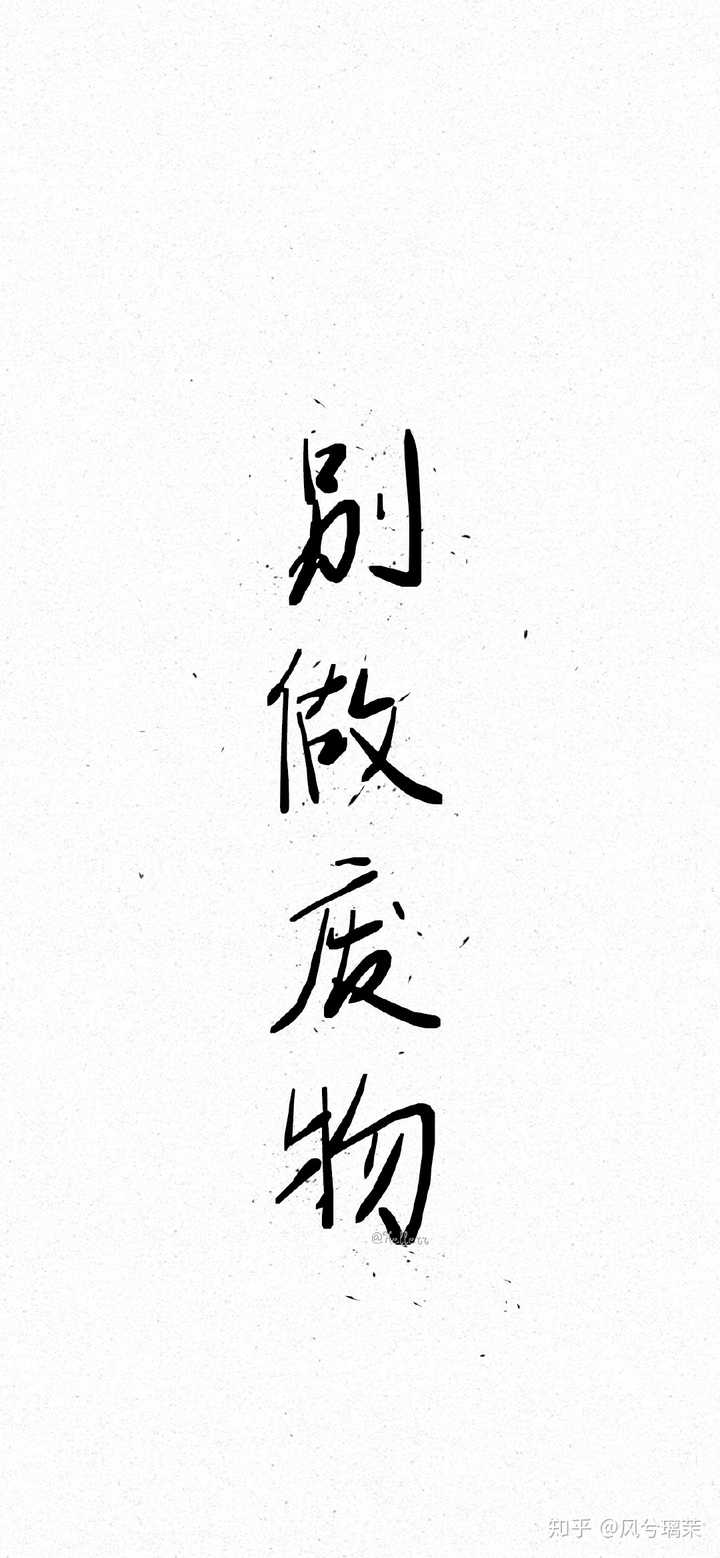 别
做
废
物
知乎 @风兮璃茉